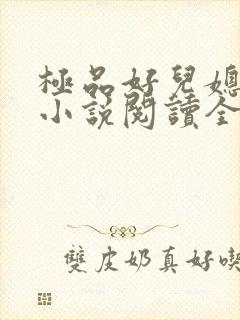 極品好兒媳
小說閱讀全
雙皮奶真好喫